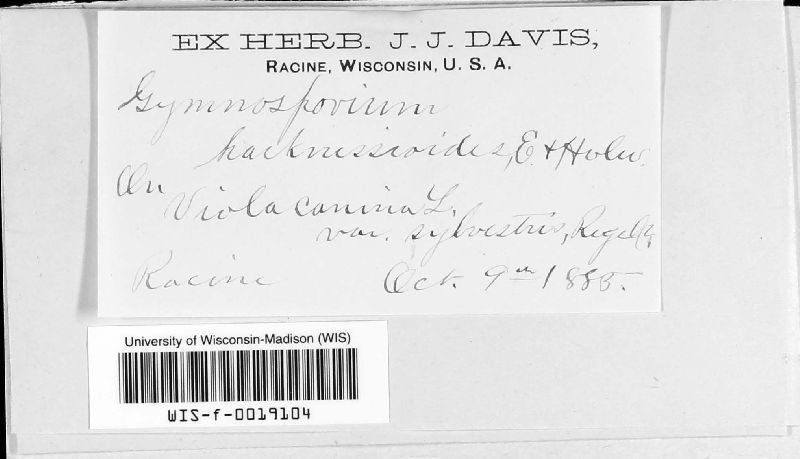 EX HERB. J. J. DAVIS,
RACINE, WISCONSIN, U. S. A.
Gymnosporium
harknessioides, E. & Holw.
On
Viola canina L.
var. sylvestris, Regel
Racine Oct. 9th 1885.
University of Wisconsin-Madison (WIS)
WIS-f-0019104